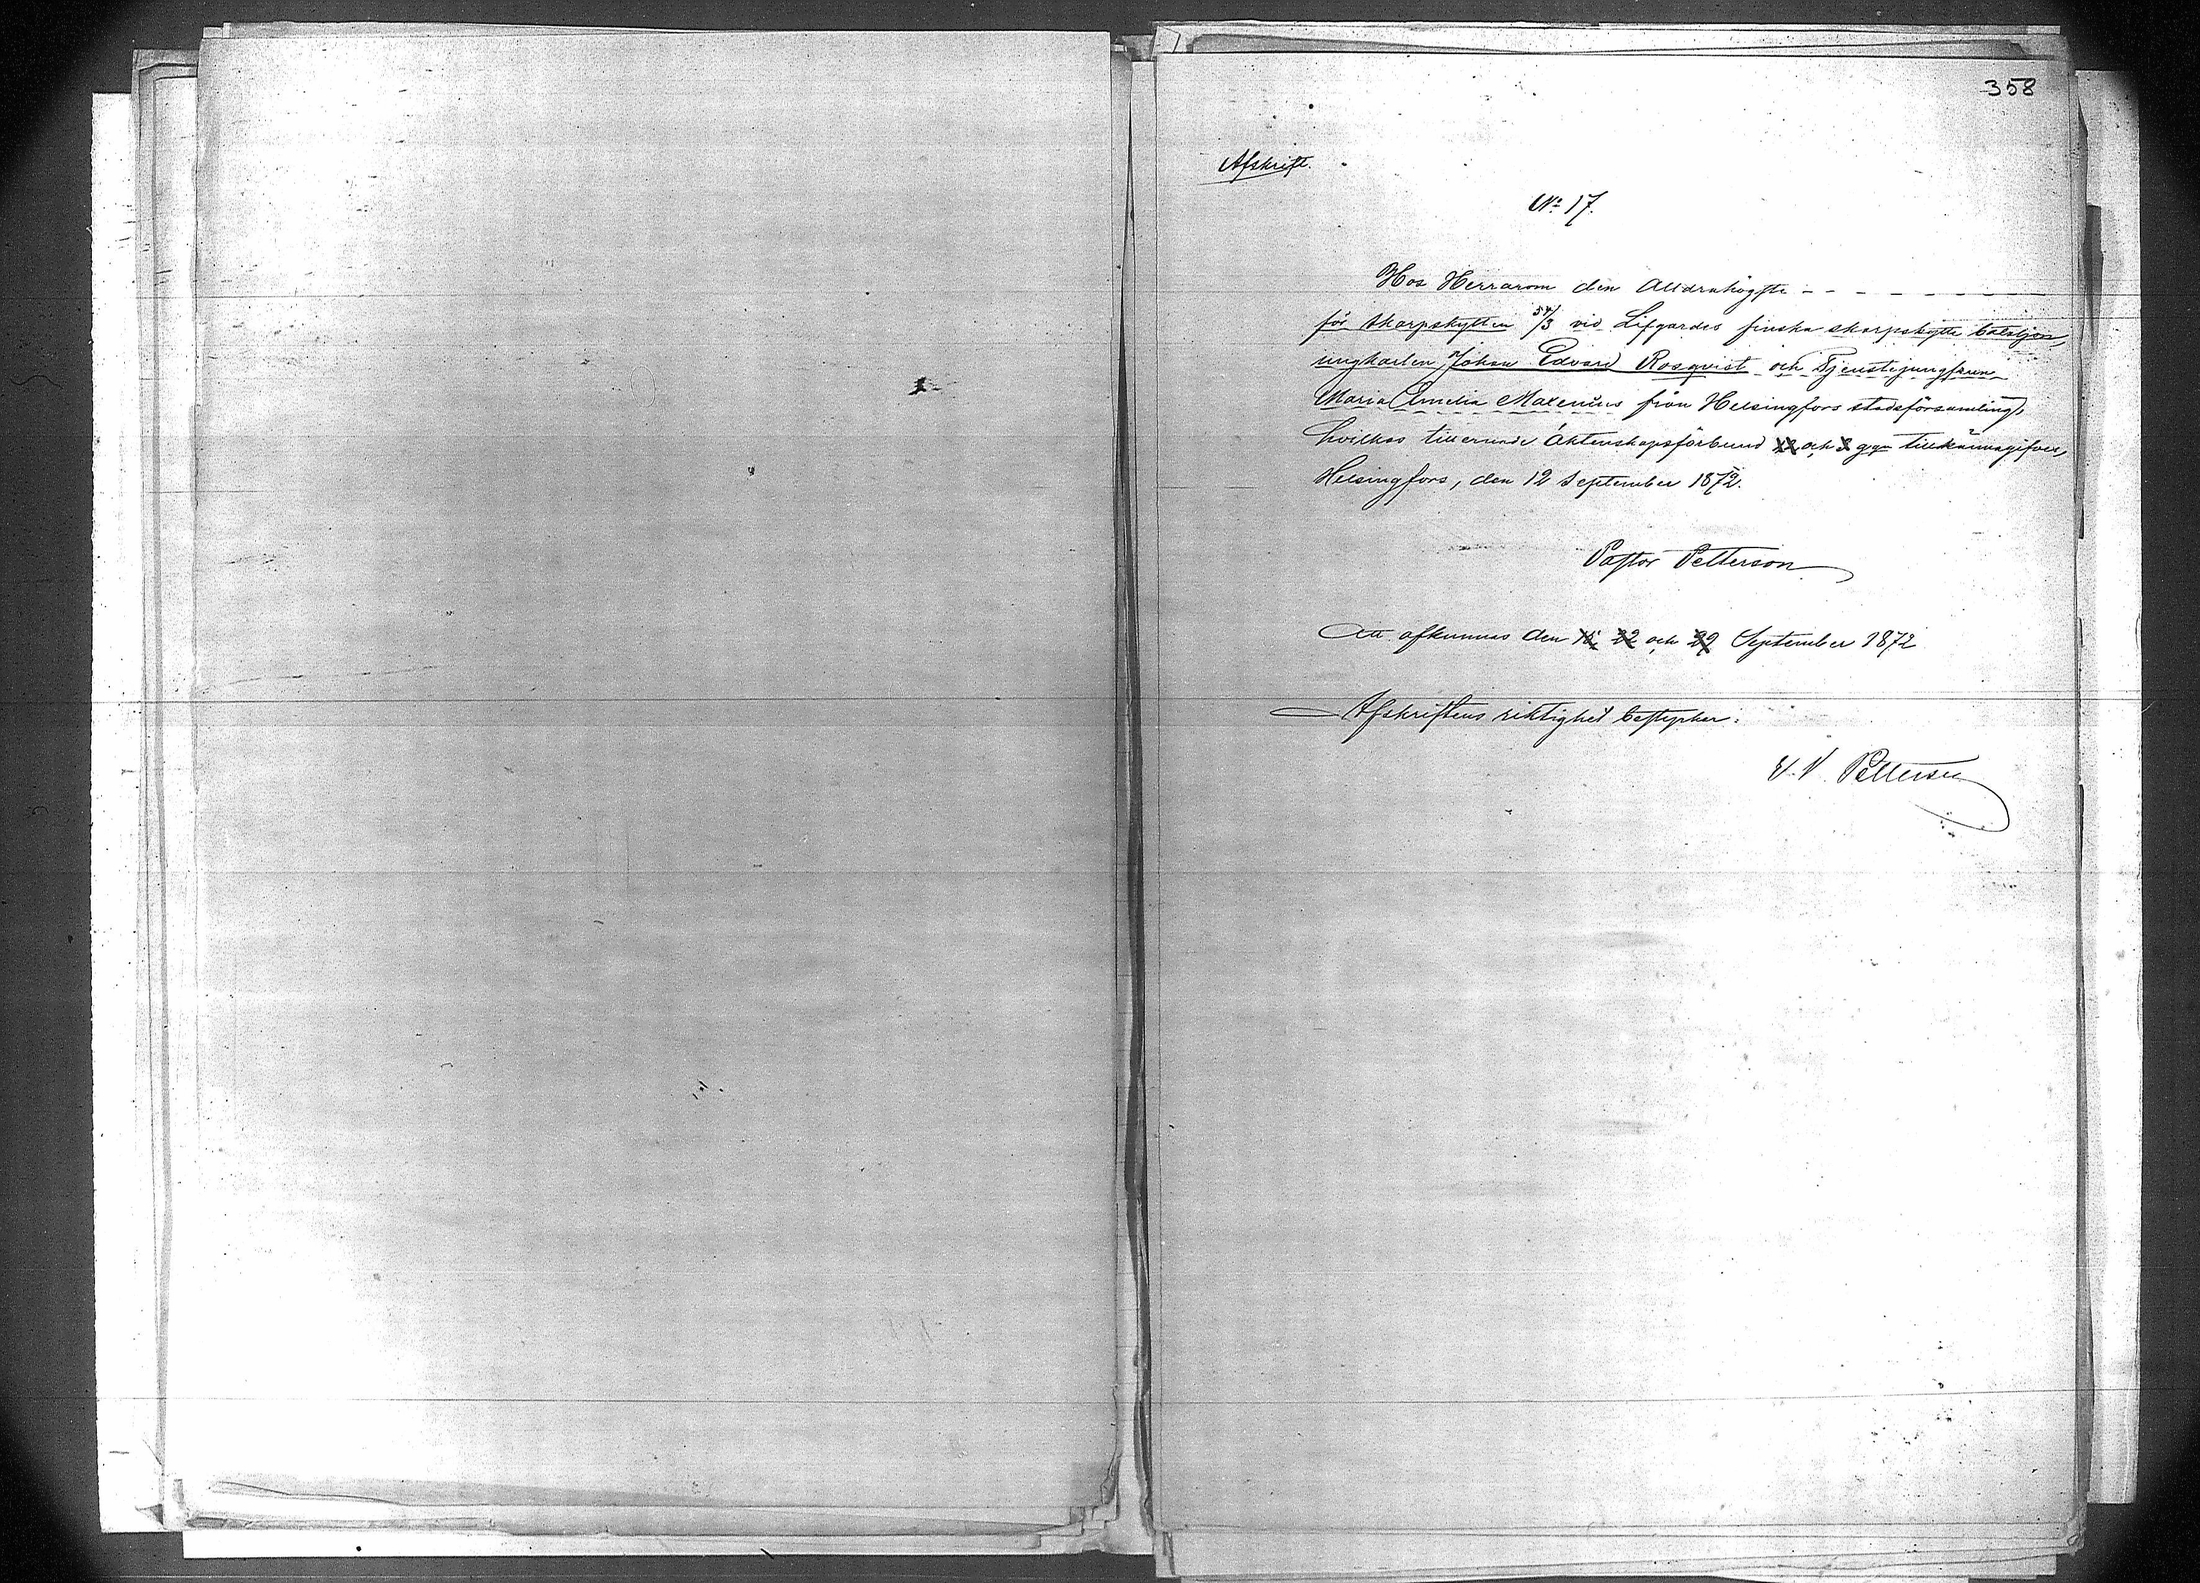 358
Afskrift.
No 17.
Hos Herrarom den Alldrahögste - - - - - - -
för skarpskytten 54/3 vid Lifgardes finska skarpskytte bataljon,
ungkarlen Johan Edvard Rosqvist och Tjenstejungfrun
Maria Emelia Maxenius från Helsingfors stadsförsamling,
hvilkas tillernade Äktenskapsförbund och 3 ggn tillkännagifves,
Helsingfors, den 12 September 1872.
Pastor Petterson
Att afkunnas den 15, 22 och 29 September 1872
Afskriftens riktighet bestyrker:
Petterson